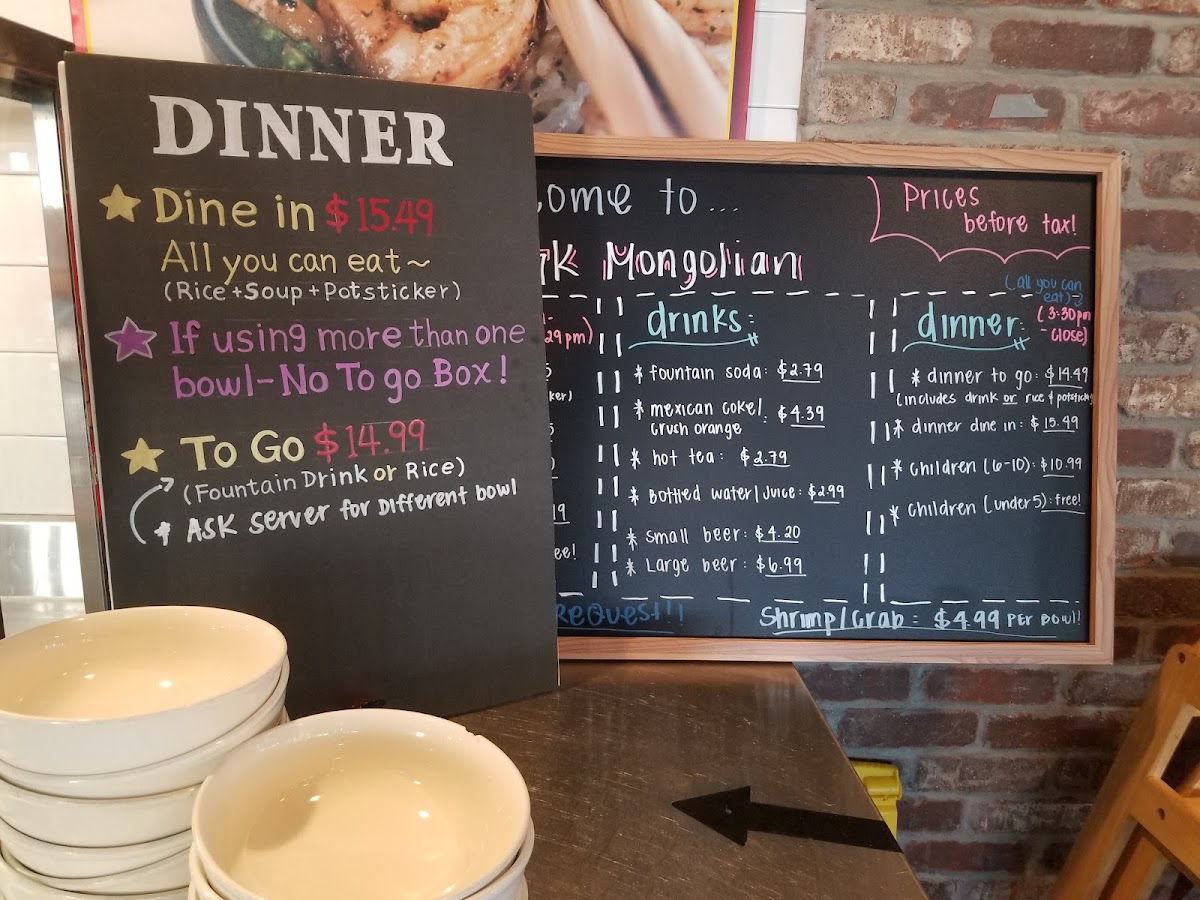 DINNER
Dine in $15.49
All you can eat~
(Rice+Soup+Potsticker)
If using more than one
bowl-No To go Box!
To Go $14.99
(Fountain Drink or Rice)
* ASK server for Different bowl
come to...
Mongolian
Prices
before tax!
29pm)
ker)
ee!
REQUEST!!
drinks:
* fountain soda: $2.79
* mexican coke/
crush orange : $4.39
* hot tea: $2.79
* Bottled water/Juice: $2.99
* Small beer: $4.20
* Large beer: $6.99
(all you can
eat)
dinner:
(3:30pm
- close)
* dinner to go: $14.99
(includes drink or rice & potsticker
* dinner dine in: $15.49
* children (6-10): $10.99
* children (under 5): free!
Shrimp/Crab = $4.99 PER BOWl!